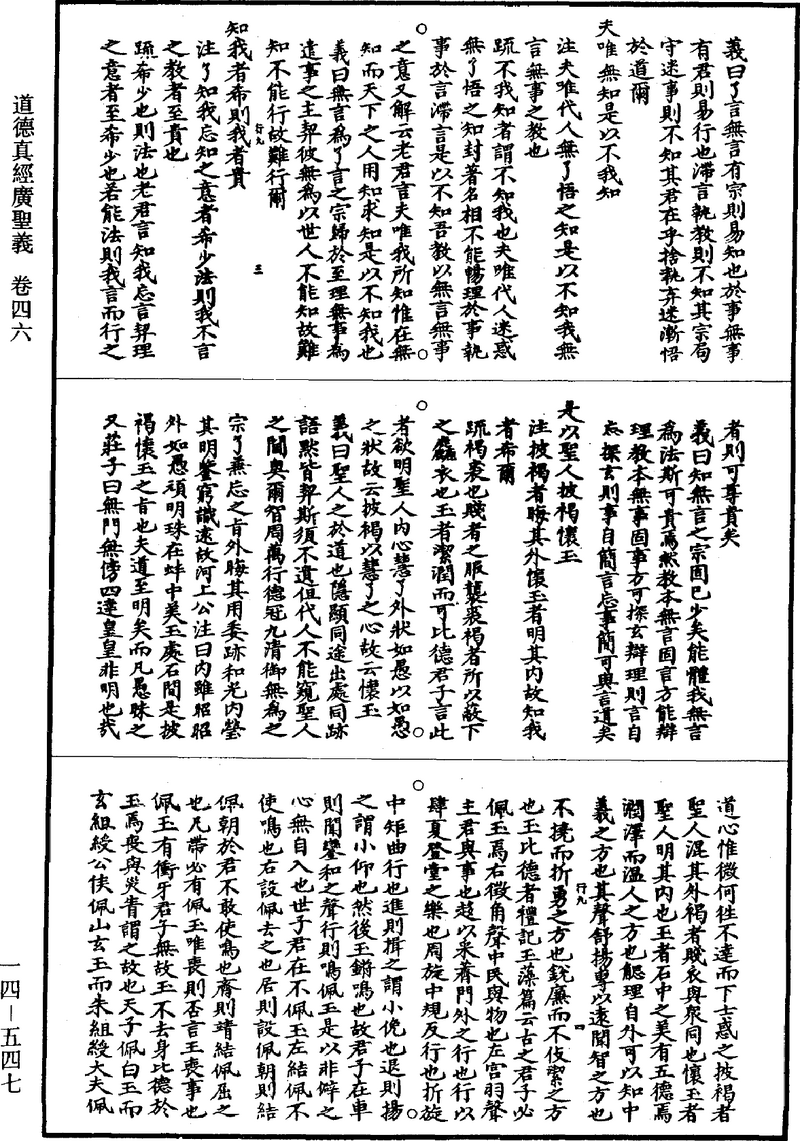 道德真經廣聖義　卷四六
一四－五四七
義曰了言無言有宗則易知也於事無事
有君則易行也滯言執教則不知其宗局
守迷事則不知其君在乎捨執弃迷漸悟
於道爾
夫唯無知是以不我知
注夫唯代人無了悟之知是以不知我無
言無事之教也
疏不我知者謂不知我也夫唯代人迷惑
無了悟之知封著名相不能暢理於事執
事於言滯言是以不知吾教以無言無事
之意又解云老君言夫唯我所知惟在無
知而天下之人用知求知是以不知我也
義曰無言為了言之宗歸於至理無事為
遣事之主契彼無為以世人不能知故難
知不能行故難行爾
知我者希則我者貴
行九
三
注了知我忘知之意者希少法則我不言
之教者至貴也
疏希少也則法也老君言知我忘言契理
之意者至希少也若能法則我言而行之
者則可尊貴矣
義曰知無言之宗固已少矣能體我無言
為法斯可貴焉然教本無言因言方能辯
理教本無事因事方可探玄辯理則言自
忘探玄則事自簡言忘事簡可與言道矣
是以聖人披褐懷玉
注披褐者晦其外懷玉者明其內故知我
者希爾
疏褐裘也賤者之服襲裘褐者所以蔽下
之麤衣也玉者潔潤而可比德君子言此
者欲明聖人內心慧了外狀如愚以如愚
之狀故云披褐以慧了之心故云懷玉
義曰聖人之於道也隱顯同途出處同跡
語默皆契斯須不遺但代人不能窺聖人
之閫奧爾智周萬行德冠九清御無為之
宗了兼忘之旨外晦其用委跡和光內瑩
其明鑒窮識遠故河上公注曰內雖昭昭
外如愚頑明珠在蚌中美玉處石間是披
褐懷玉之旨也夫道至明矣而凡愚昧之
又莊子曰無門無傍四達皇皇非明也哉
道心惟微何往不達而下士惑之披褐者
聖人混其外褐者賤衣與眾同也懷玉者
聖人明其內也玉者石中之美有五德焉
潤澤而溫人之方也䚡理自外可以知中
義之方也其聲舒揚專以遠聞智之方也
行九
四
不撓而折勇之方也銳廉而不伎絜之方
也玉比德者禮記玉藻篇云古之君子必
佩玉焉右徵角聲中民與物也左宮羽聲
主君與事也趍以采薺門外之行也行以
肆夏登堂之樂也周旋中規反行也折旋
中矩曲行也進則揖之謂小俛也退則揚
之謂小仰也然後玉鏘鳴也故君子在車
則聞鑾和之聲行則鳴佩玉是以非僻之
心無自入也世子君在不佩玉左結佩不
使鳴也右設佩去之也居則設佩朝則結
佩朝於君不敢使鳴也齋則靖結佩屈之
也凡帶必有佩玉唯喪則否言王喪事也
佩玉有衝牙君子無故玉不去身比德於
玉焉喪與災眚謂之故也天子佩白玉而
玄組綬公侯佩山玄玉而朱組綬大夫佩